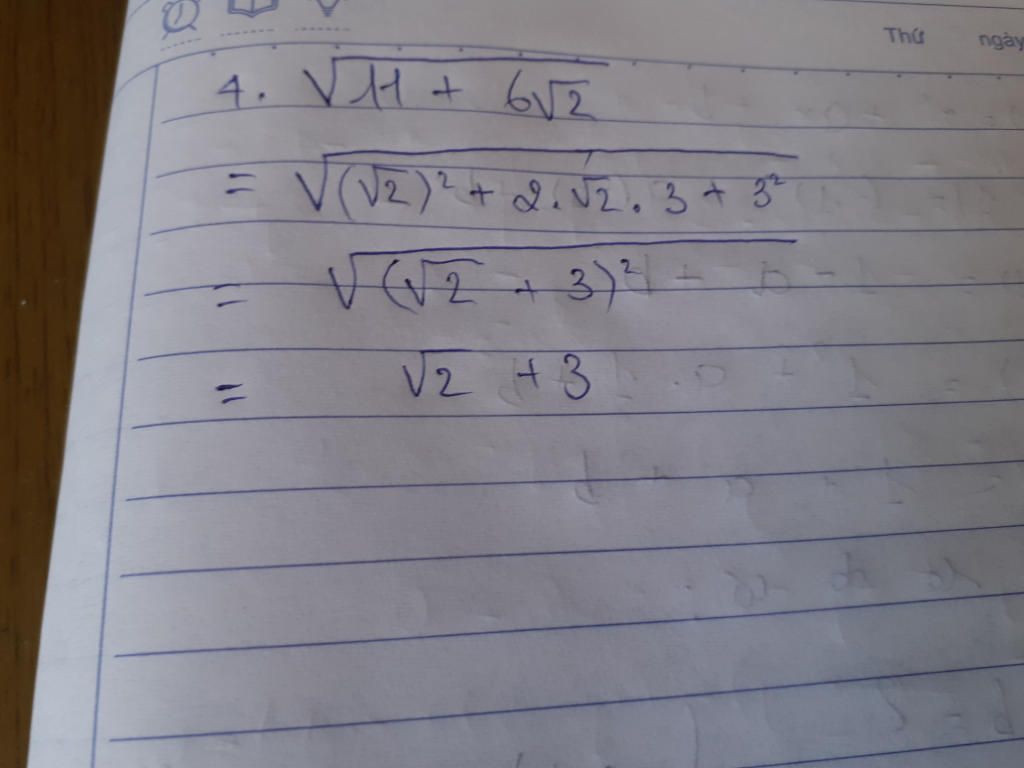 Thứ ngày
4. √(11 + 6√2)
= √((√2)² + 2.√2.3 + 3²)
= √((√2 + 3)²)
= √2 + 3